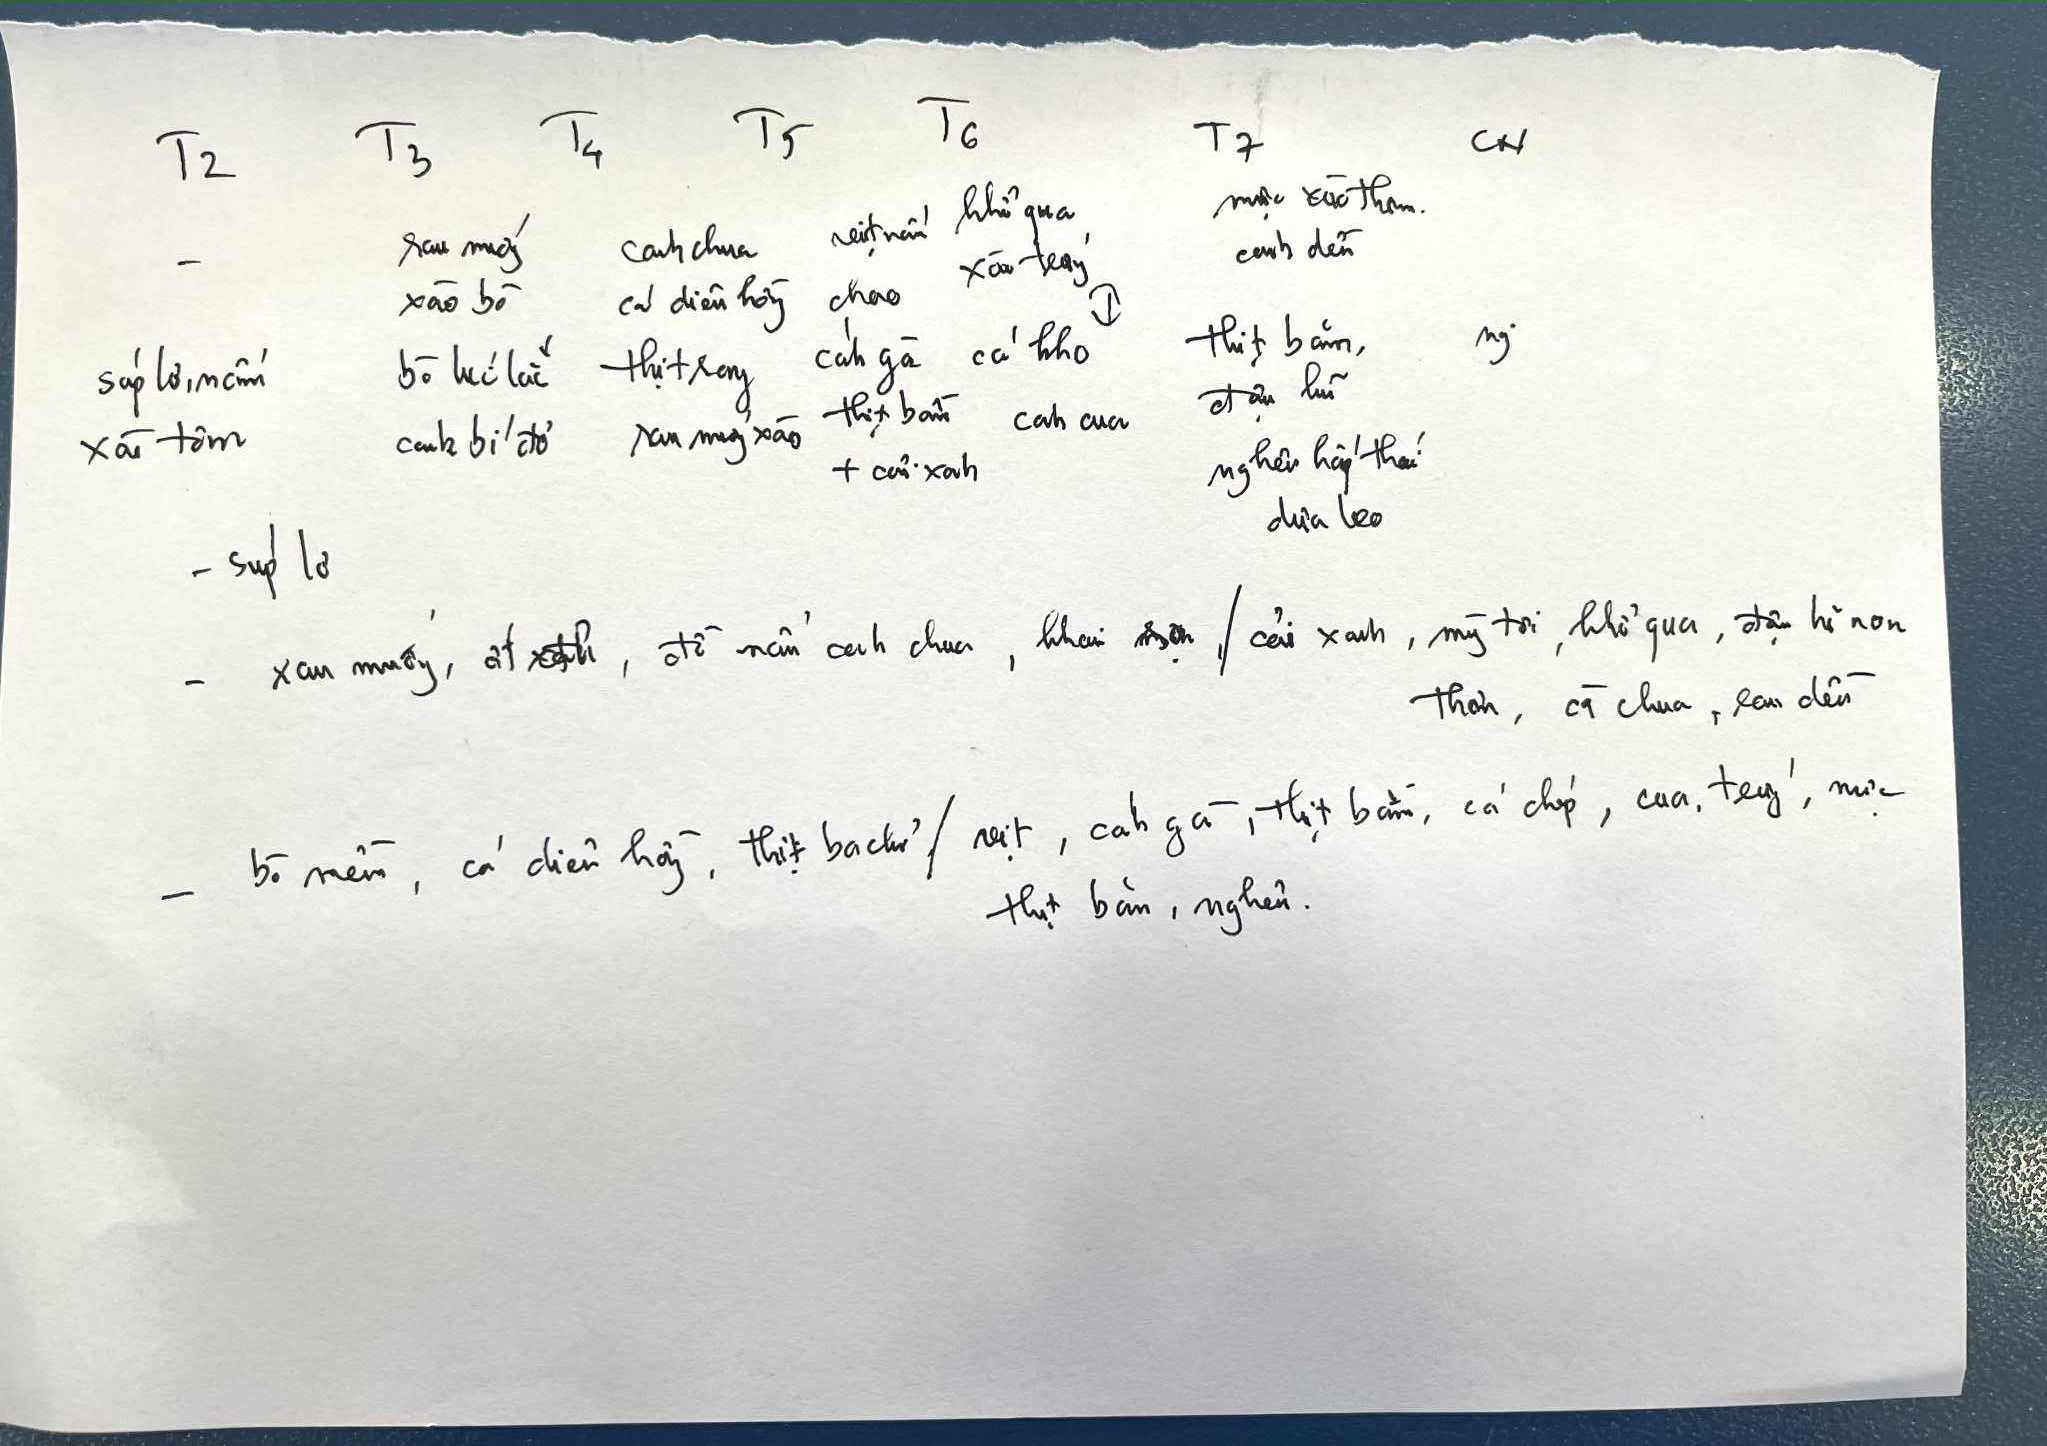 T2 T3 T4 T5 T6 T7 CN
- rau muống canh chua vịt nấu khổ qua mực xào thơm.
xào bò cá diêu hồng chao xào trứng canh dền
súp lơ, nấm bò lúc lắc thịt rang cánh gà cá kho thịt băm, ng
xào tôm canh bí đỏ rau muống xào thịt băm canh cua đậu hũ
+ cải xanh nghêu hấp thái
dưa leo
- súp lơ
- rau muống, ớt, đồ nấu canh chua, khoai / cải xanh, mồng tơi, khổ qua, đậu hũ non
thơm, cà chua, rau dền
- bò mềm, cá diêu hồng, thịt ba chỉ / vịt, cánh gà, thịt bằm, cá chép, cua, trứng, mực
thịt bằm, nghêu.